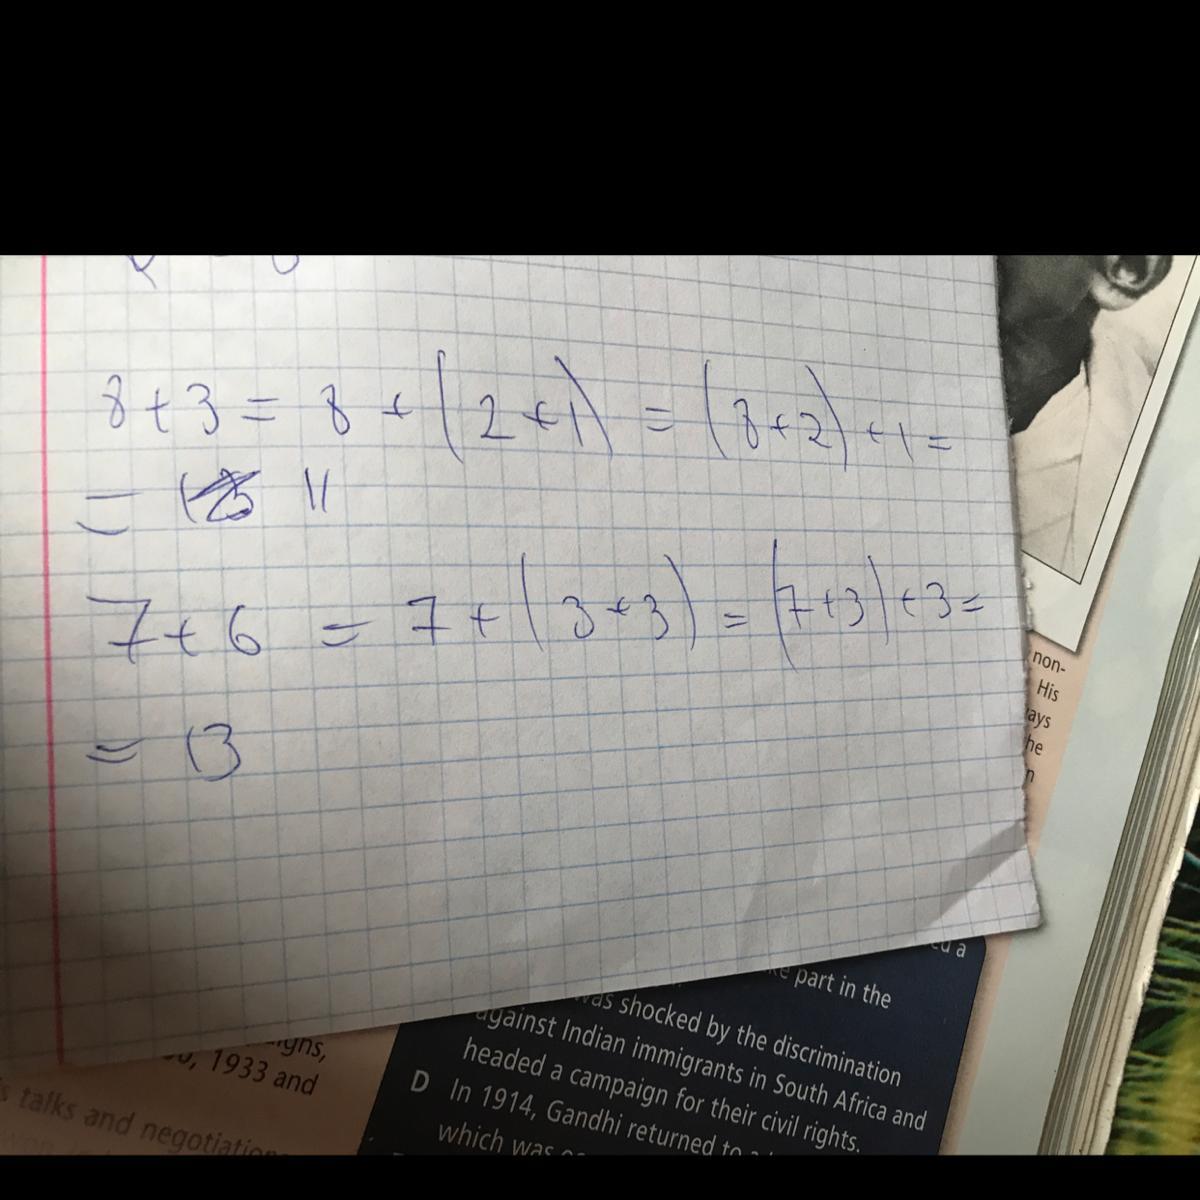 8 + 3 = 8 + (2 + 1) = (8 + 2) + 1 =
= 11
7 + 6 = 7 + (3 + 3) = (7 + 3) + 3 =
= 13
non-
His
ays
he
n
a
part in the
was shocked by the discrimination
against Indian immigrants in South Africa and
headed a campaign for their civil rights.
D In 1914, Gandhi returned to
which was
igns,
1933 and
talks and negotiation